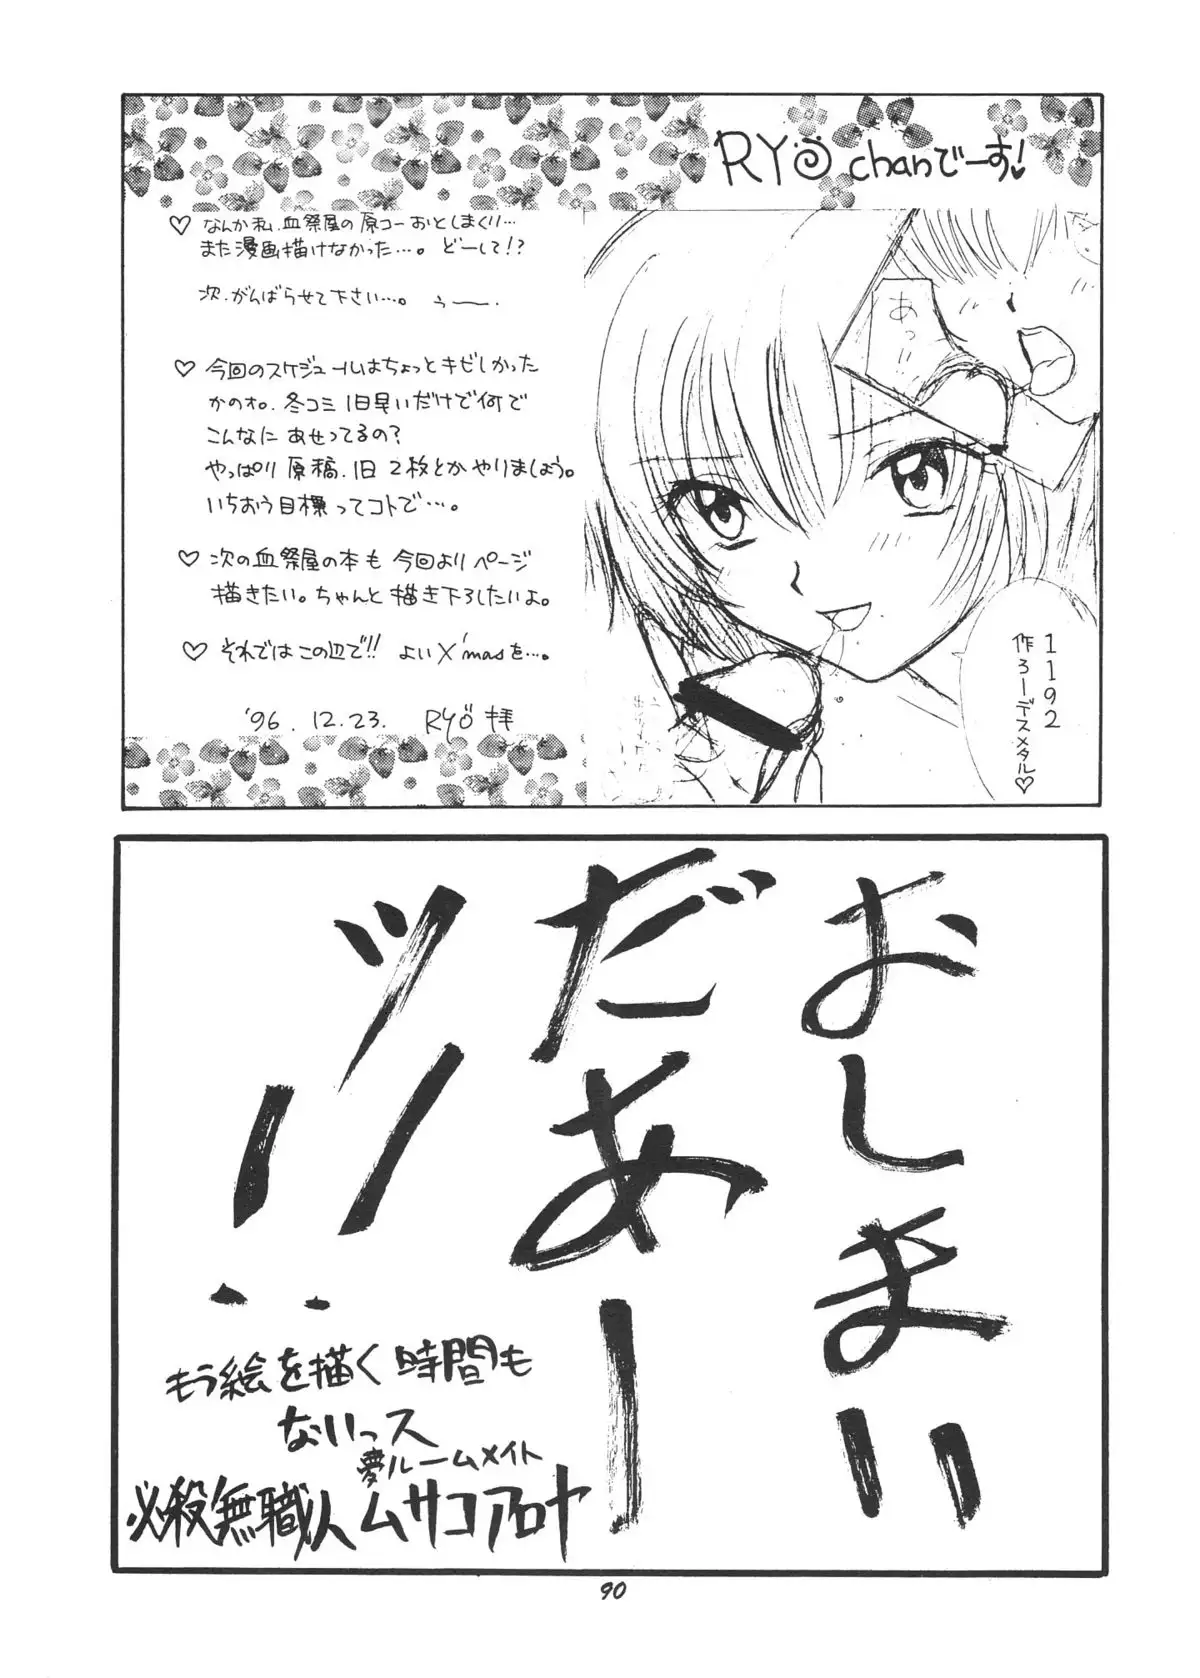 RYO chanでーす!
♡ なんか私、血祭屋の原コーおとしまくり…
また漫画描けなかった…。どーして!?
次、がんばらせて下さい…。うー。
♡ 今回のスケジュールはちょっとキビしかった
かのォ。冬コミ1日早いだけで何で
こんなにあせってるの?
やっぱり原稿、1日2枚とかやりましょう。
いちおう目標ってコトで…。
♡ 次の血祭屋の本も今回よりページ
描きたい。ちゃんと描き下ろしたいよ。
♡ それではこの辺で!! よいX'masを…。
'96.12.23. RYO拝
あっ
1192
作ろーデスメタル♡
おしまい
だあー
ッ!!
もう絵を描く時間も
ないっス
夢ルームメイト
必殺無職人ムサコアロヤ
90